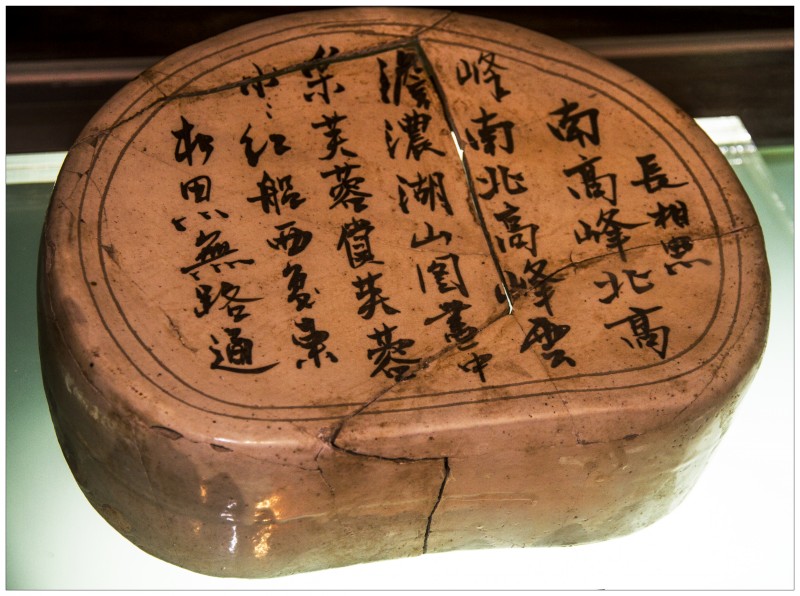 長相思
南高峰北高
峰南北高峰雲
澹濃湖山图畫中
采芙蓉賞芙蓉
小〻紅船西复東
相思無路通